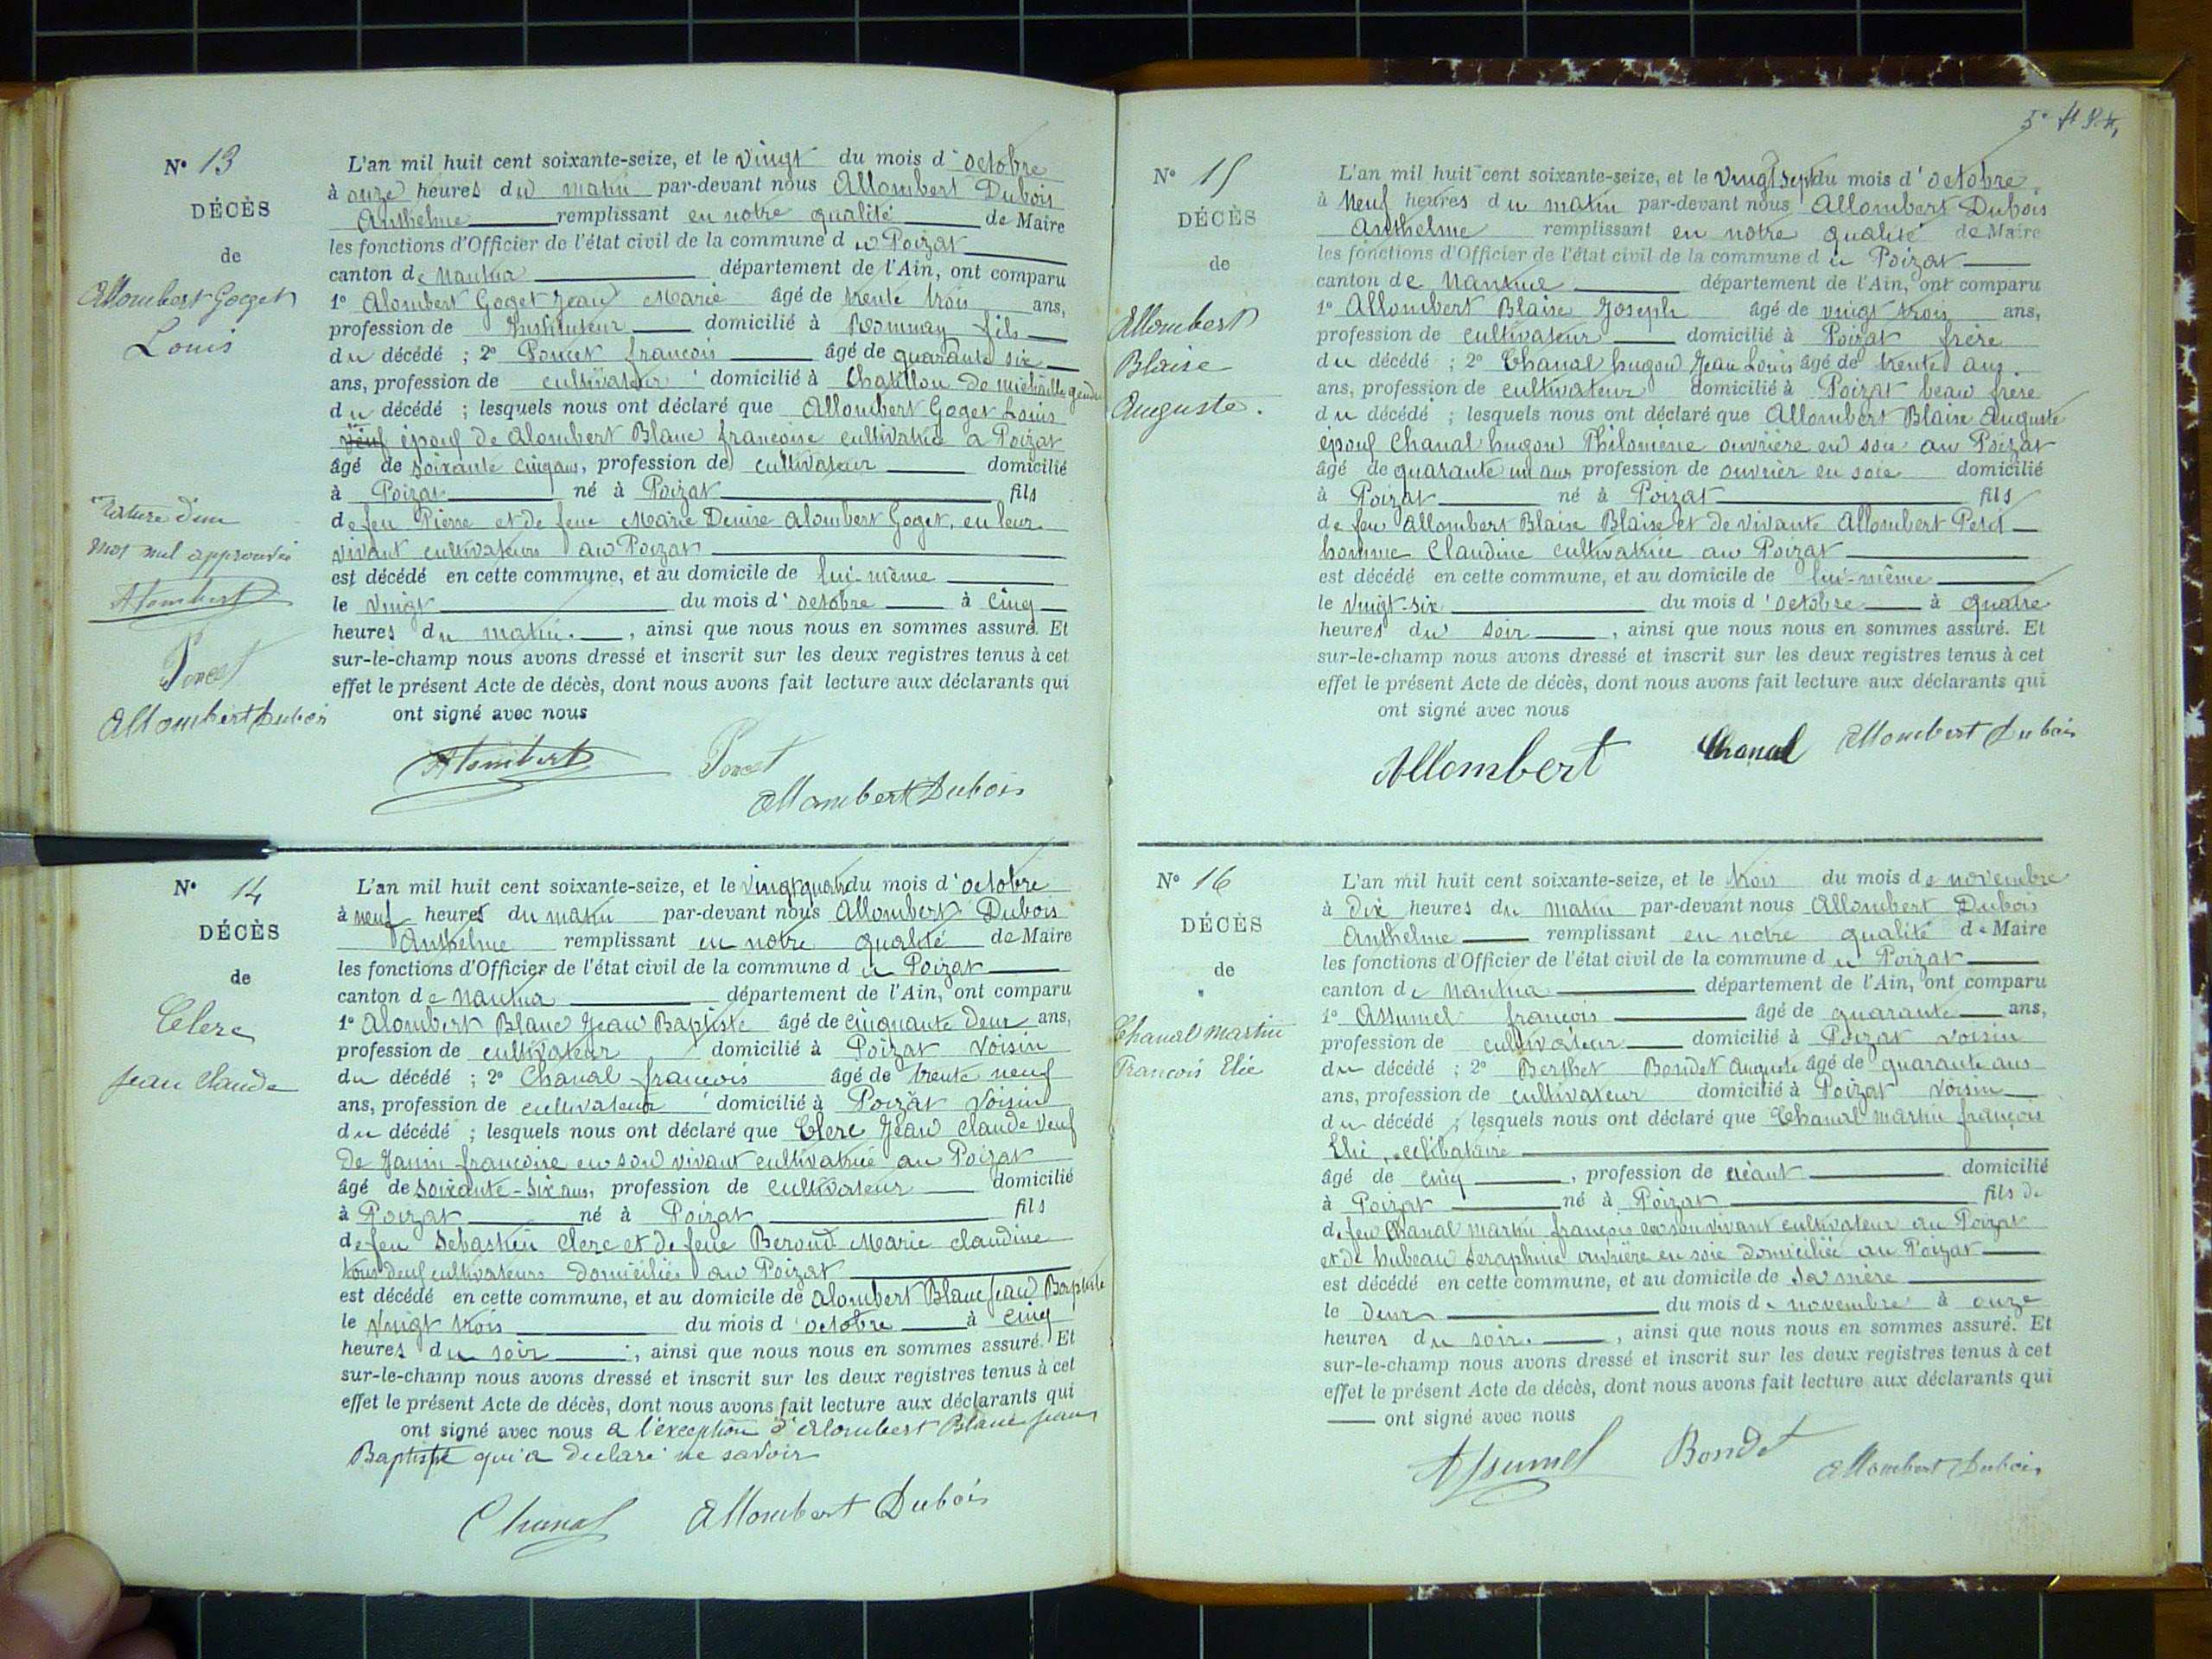 N° 13
DÉCÈS
de
Allombert Goget
Louis
Rature d'un
mot nul approuvée
Alombert
Poncet
Allombert Dubois
L'an mil huit cent soixante-seize, et le vingt du mois d'octobre
à onze heures du matin par-devant nous Allombert Dubois
Anthelme remplissant en notre qualité de Maire
les fonctions d'Officier de l'état civil de la commune du Poizat
canton de Nantua département de l'Ain, ont comparu
1° Alombert Goget Jean Marie âgé de trente trois ans,
profession de Instituteur domicilié à Romnay fils
du décédé ; 2° Poncet francois âgé de quarante six
ans, profession de cultivateur domicilié à Chatillon de michaille gendre
du décédé ; lesquels nous ont déclaré que Allombert Goget Louis
veuf époux de Alombert Blanc francoise cultivatrice a Poizat
âgé de soixante cinq ans, profession de cultivateur domicilié
à Poizat né à Poizat fils
de feu Pierre et de feue Marie Denise Alombert Goget, en leur
vivant cultivateurs au Poizat
est décédé en cette commune, et au domicile de lui-même
le vingt du mois d'octobre à cinq
heures du matin. , ainsi que nous nous en sommes assuré. Et
sur-le-champ nous avons dressé et inscrit sur les deux registres tenus à cet
effet le présent Acte de décès, dont nous avons fait lecture aux déclarants qui
ont signé avec nous
Alombert Poncet
Allombert Dubois
N° 14
DÉCÈS
de
Clerc
Jean Claude
L'an mil huit cent soixante-seize, et le vingt quatre du mois d'octobre
à neuf heures du matin par-devant nous Allombert Dubois
Anthelme remplissant en notre qualité de Maire
les fonctions d'Officier de l'état civil de la commune du Poizat
canton de Nantua département de l'Ain, ont comparu
1° Alombert Blanc Jean Baptiste âgé de cinquante deux ans,
profession de cultivateur domicilié à Poizat voisin
du décédé ; 2° Chanal francois âgé de trente neuf
ans, profession de cultivateur domicilié à Poizat voisin
du décédé ; lesquels nous ont déclaré que Clerc Jean Claude veuf
de Janin francoise en son vivant cultivatrice au Poizat
âgé de soixante-six ans, profession de cultivateur domicilié
à Poizat né à Poizat fils
de feu Sebastien Clerc et de feue Beroud Marie claudine
tous deux cultivateurs domiciliés au Poizat
est décédé en cette commune, et au domicile de alombert Blanc Jean Baptiste
le vingt trois du mois d'octobre à cinq
heures du soir , ainsi que nous nous en sommes assuré. Et
sur-le-champ nous avons dressé et inscrit sur les deux registres tenus à cet
effet le présent Acte de décès, dont nous avons fait lecture aux déclarants qui
ont signé avec nous a l'exception d'Alombert Blanc Jean
Baptiste qui a declaré ne savoir
Chanal Allombert Dubois
N° 15
DÉCÈS
de
Allombert
Blaise
Auguste.
L'an mil huit cent soixante-seize, et le vingt sept du mois d'octobre.
à neuf heures du matin par-devant nous Allombert Dubois
Anthelme remplissant en notre qualité de Maire
les fonctions d'Officier de l'état civil de la commune du Poizat
canton de Nantua département de l'Ain, ont comparu
1° Allombert Blaise Joseph âgé de vingt trois ans,
profession de cultivateur domicilié à Poizat frère
du décédé ; 2° Chanal hugon Jean Louis âgé de trente ans.
ans, profession de cultivateur domicilié à Poizat beau frere
du décédé ; lesquels nous ont déclaré que Allombert Blaise Auguste
époux Chanal hugon Philomène ouvrière en soie au Poizat
âgé de quarante un ans profession de ouvrier en soie domicilié
à Poizat né à Poizat fils
de feu Allombert Blaise Blaise et de vivante Allombert Petit
homme Claudine cultivatrice au Poizat
est décédé en cette commune, et au domicile de lui-même
le vingt-six du mois d'octobre à quatre
heures du soir , ainsi que nous nous en sommes assuré. Et
sur-le-champ nous avons dressé et inscrit sur les deux registres tenus à cet
effet le présent Acte de décès, dont nous avons fait lecture aux déclarants qui
ont signé avec nous
Allombert Chanal Allombert Dubois
N° 16
DÉCÈS
de
Chanal Martin
Francois Elie
L'an mil huit cent soixante-seize, et le trois du mois de novembre
à dix heures du matin par-devant nous Allombert Dubois
Anthelme remplissant en notre qualité de Maire
les fonctions d'Officier de l'état civil de la commune du Poizat
canton de Nantua département de l'Ain, ont comparu
1° Assumel francois âgé de quarante ans,
profession de cultivateur domicilié à Poizat voisin
du décédé ; 2° Berthet Bondet Auguste âgé de quarante ans
ans, profession de cultivateur domicilié à Poizat voisin
du décédé ; lesquels nous ont déclaré que Chanal Martin françois
Elie, célibataire
âgé de cinq , profession de néant domicilié
à Poizat né à Poizat fils de
de feu Chanal Martin françois en son vivant cultivateur au Poizat
et de hubeau Seraphine ouvrière en soie domiciliée au Poizat
est décédé en cette commune, et au domicile de sa mère
le deux du mois de novembre à onze
heures du soir. , ainsi que nous nous en sommes assuré. Et
sur-le-champ nous avons dressé et inscrit sur les deux registres tenus à cet
effet le présent Acte de décès, dont nous avons fait lecture aux déclarants qui
ont signé avec nous
Assumel Bondet Allombert Dubois